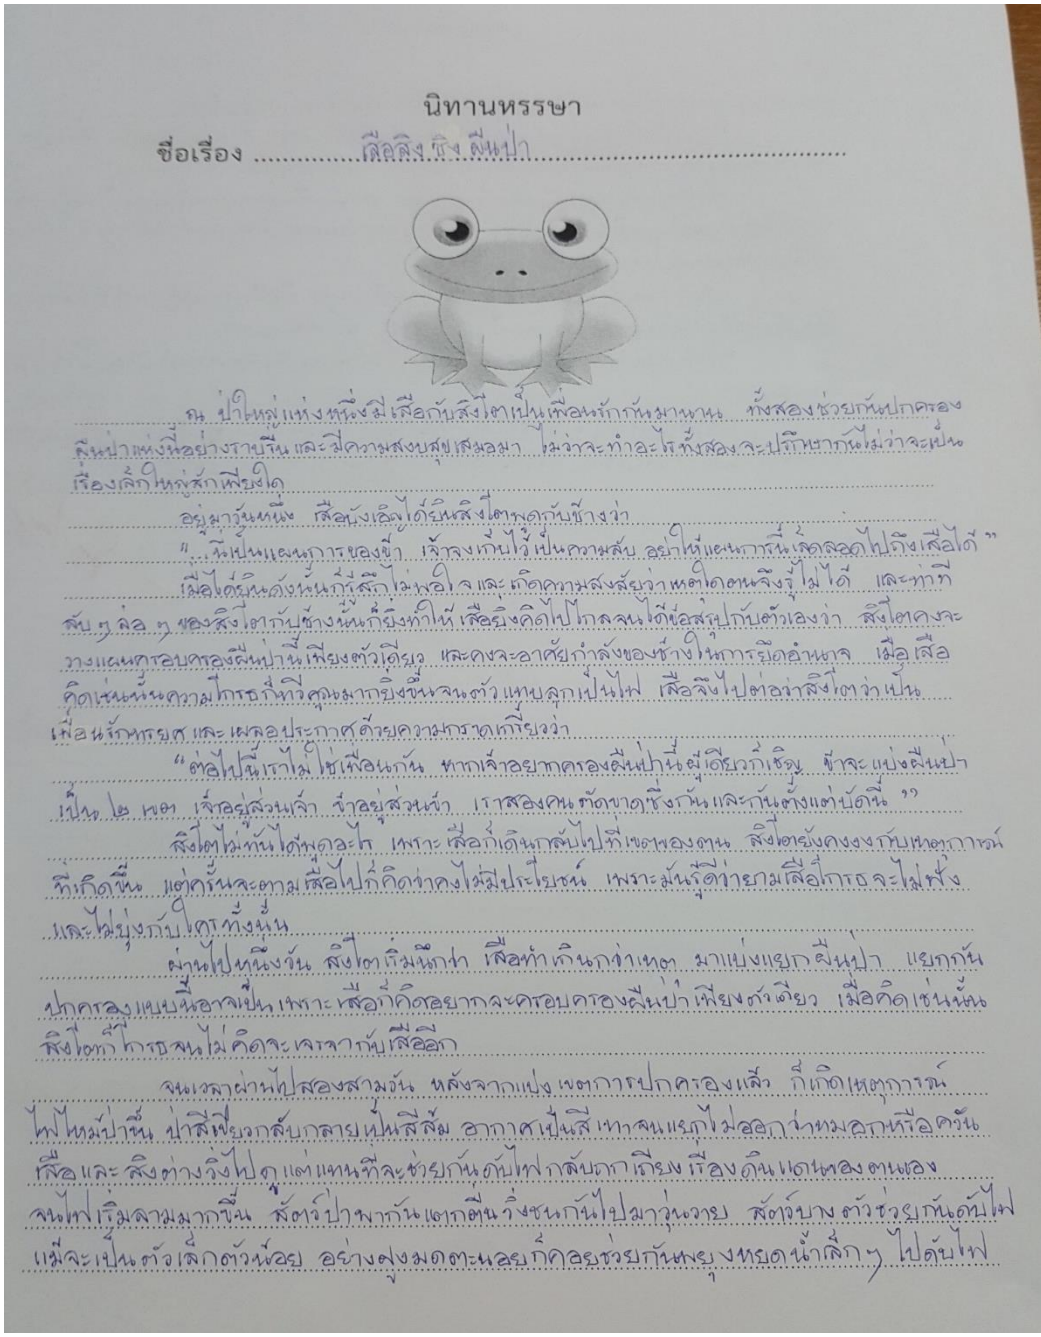 นิทานหรรษา
ชื่อเรื่อง ................เสือสิง ชิง ผืนป่า................
ณ ป่าใหญ่แห่งหนึ่งมีเสือกับสิงโตเป็นเพื่อนรักกันมานาน ทั้งสองช่วยกันปกครอง
ผืนป่าแห่งนี้อย่างราบรื่นและมีความสงบสุขเสมอมา ไม่ว่าจะทำอะไรทั้งสองจะปรึกษากันไม่ว่าจะเป็น
เรื่องเล็กใหญ่สักเพียงใด
อยู่มาวันหนึ่ง เสือบังเอิญได้ยินสิงโตพูดกับช้างว่า
"...นี่เป็นแผนการของข้า เจ้าจงเก็บไว้เป็นความลับ อย่าให้แผนการนี้เล็ดลอดไปถึงเสือได้"
เมื่อได้ยินดังนั้นก็รู้สึกไม่พอใจและเกิดความสงสัยว่าเหตุใดตนจึงรู้ไม่ได้ และท่าที
ลับๆ ล่อๆ ของสิงโตกับช้างนั้นก็ยิ่งทำให้เสือยิ่งคิดไปไกลจนได้ข้อสรุปกับตัวเองว่า สิงโตคงจะ
วางแผนครอบครองผืนป่านี้เพียงตัวเดียว และคงจะอาศัยกำลังของช้างในการยึดอำนาจ เมื่อเสือ
คิดเช่นนั้นความโกรธก็ทวีคูณมากยิ่งขึ้นจนตัวแทบลุกเป็นไฟ เสือจึงไปต่อว่าสิงโตว่าเป็น
เพื่อนรักทรยศและเผลอประกาศด้วยความกราดเกรี้ยวว่า
"ต่อไปนี้เราไม่ใช่เพื่อนกัน หากเจ้าอยากครองผืนป่านี้ผู้เดียวก็เชิญ ข้าจะแบ่งผืนป่า
เป็น ๒ เขต เจ้าอยู่ส่วนเจ้า ข้าอยู่ส่วนข้า เราสองคนตัดขาดซึ่งกันและกันตั้งแต่บัดนี้"
สิงโตไม่ทันได้พูดอะไร เพราะเสือก็เดินกลับไปที่เขตของตน สิงโตยังคงงงกับเหตุการณ์
ที่เกิดขึ้น แต่ครั้นจะตามเสือไปก็คิดว่าคงไม่มีประโยชน์ เพราะมันรู้ดีว่ายามเสือโกรธจะไม่ฟัง
และไม่ยุ่งกับใครทั้งนั้น
ผ่านไปหนึ่งวัน สิงโตเริ่มนึกว่า เสือทำเกินกว่าเหตุ มาแบ่งแยกผืนป่า แยกกัน
ปกครองแบบนี้อาจเป็นเพราะเสือก็คิดอยากจะครอบครองผืนป่าเพียงตัวเดียว เมื่อคิดเช่นนั้น
สิงโตก็โกรธจนไม่คิดจะเจรจากับเสืออีก
จนเวลาผ่านไปสองสามวัน หลังจากแบ่งเขตการปกครองแล้ว ก็เกิดเหตุการณ์
ไฟไหม้ป่าขึ้น ป่าสีเขียวกลับกลายเป็นสีส้ม อากาศเป็นสีเทาจนแยกไม่ออกว่าหมอกหรือควัน
เสือและสิงต่างวิ่งไปดูแต่แทนที่จะช่วยกันดับไฟกลับถกเถียงเรื่องดินแดนของตนเอง
จนไฟเริ่มลามมากขึ้น สัตว์ป่าพากันแตกตื่นวิ่งชนกันไปมาวุ่นวาย สัตว์บางตัวช่วยกันดับไฟ
แม้จะเป็นตัวเล็กตัวน้อย อย่างฝูงมดตะนอยก็คอยช่วยกันพยุงหยดน้ำเล็กๆ ไปดับไฟ